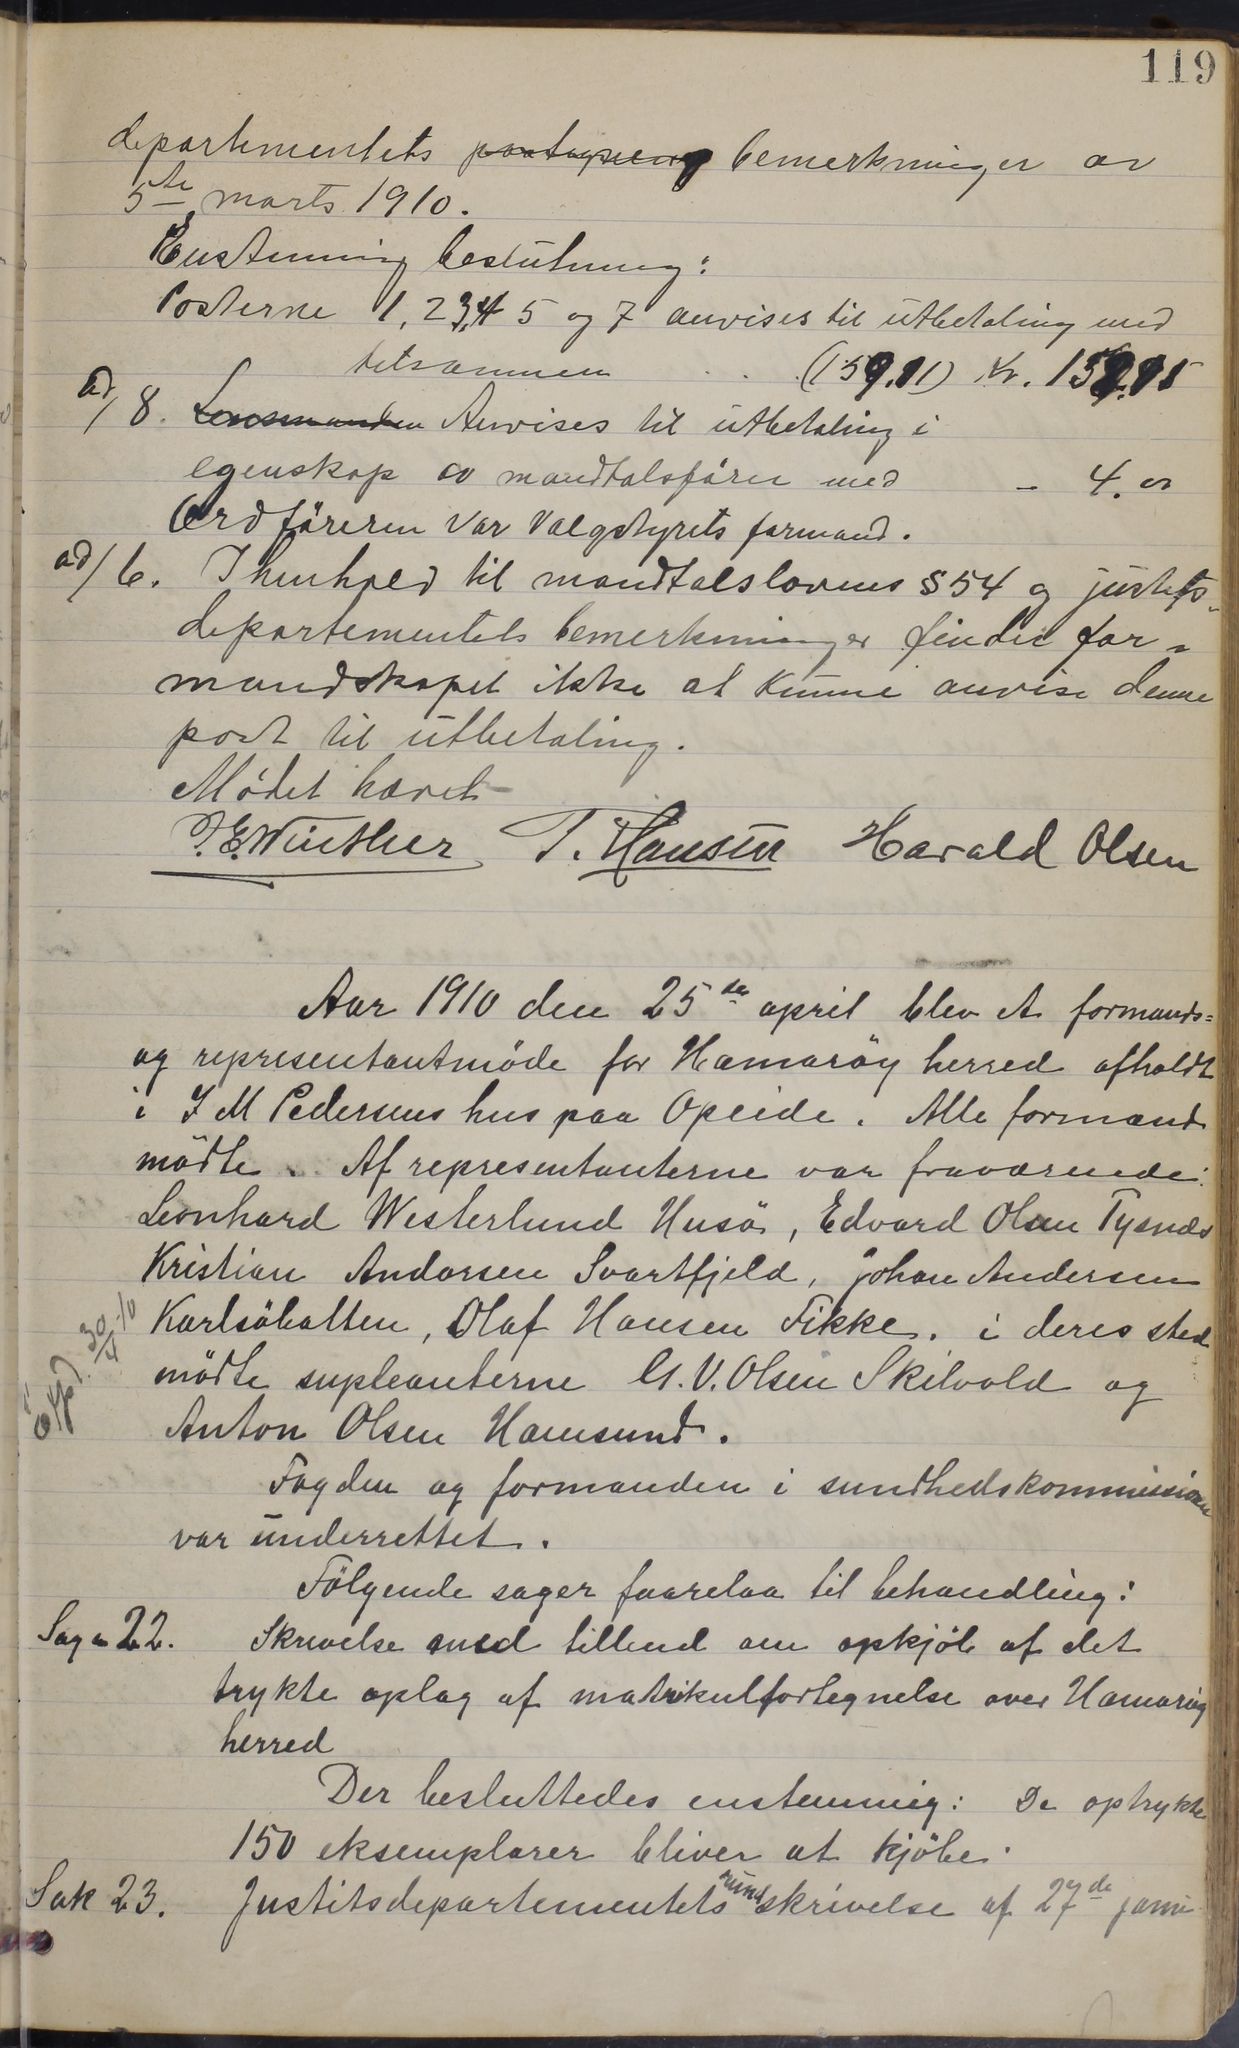 119
departementets bemerkninger av
5te marts 1910.
Enstemmig beslutning:
Posterne 1, 2 3,4 5 og 7 anvises til utbetaling med
tilsammen . . (159.11) Kr.
ad/ 8. Lensmanden Anvises til utbetaling i
egenskap av mandtalsförer med - 4.00
Ordföreren var Valgstyrets formand.
ad/ 6. I henhold til mandtalslovens § 54 og justits-
departementets bemerkninger finder for-
mandskapet ikke at kunne anvise denne
post til utbetaling.
Mödet hævet
Winther T. Hansen Harald Olsen
Aar 1910 den 25de april blev et formands=
og representantmöde for Hamaröy herred afholdt
i I M Pedersens hus paa Opeide. Alle formænd
mödte. Af representanterne var fraværende:
Leonhard Westerlund Husö, Edvard Olsen Tysnes
Kristian Andersen Svartfjeld, Johan Andersen
Karlsöbatten, Olaf Hansen Fikke. i deres sted
mödte supleanterne G. V. Olsen Skilvold og
Anton Olsen Hamsund.
30/4 10
Fogden og formanden i sundhedskommissionen
var underrettet.
Fölgende sager faarelaa til behandling:
Sag 22. Skrivelse med tilbud om opkjöb af det
trykte oplag af matrikulfortegnelse over Hamaröy
herred
Der besluttedes enstemmig: De optrykte
150 eksemplarer bliver at kjöbe.
Sak 23. Justitsdepartementets rundskrivelse af 27de janu